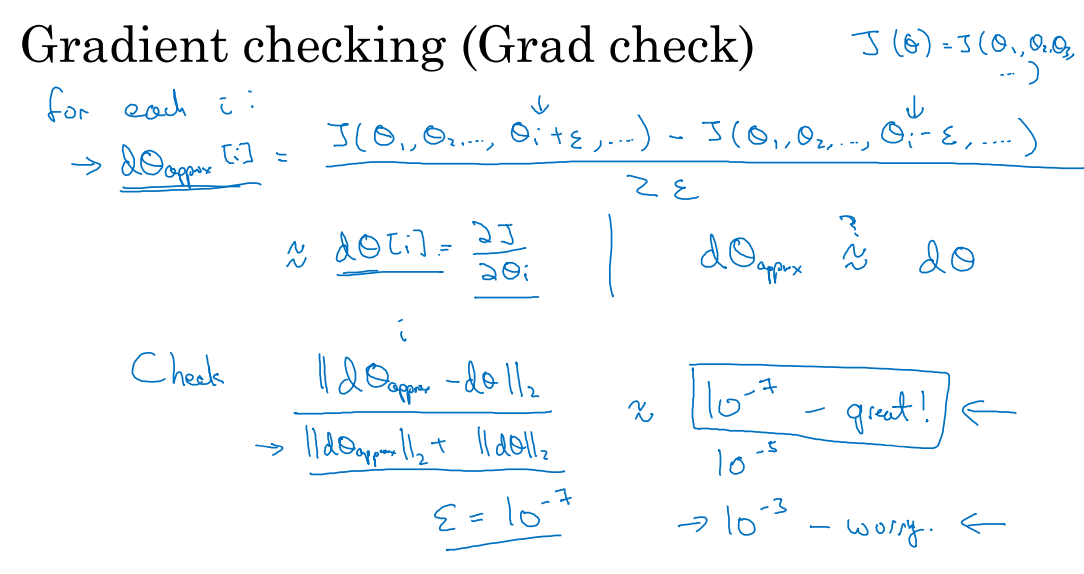 Gradient checking (Grad check)
J(θ) = J(θ₁, θ₂, θ₃, ...)
for each i:
→ dθapprox[i] = (J(θ₁, θ₂, ..., θᵢ+ε, ....) - J(θ₁, θ₂, ..., θᵢ-ε, ....)) / 2ε
≈ dθ[i] = ∂J/∂θᵢ | dθapprox ≈? dθ
i
Check ‖dθapprox - dθ‖₂ / (‖dθapprox‖₂ + ‖dθ‖₂) ≈ 10⁻⁷ - great! ←
10⁻⁵
ε = 10⁻⁷ → 10⁻³ - worry. ←